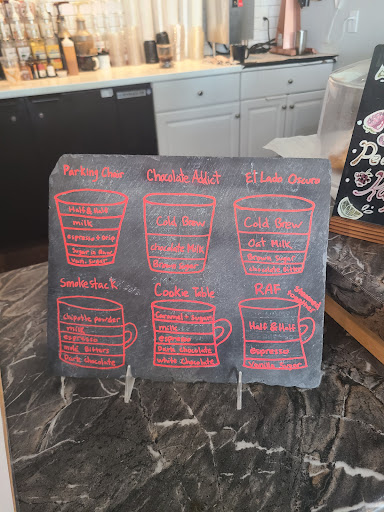 Parking Chair
Half & Half
milk
espresso & drip
Chocolate Addict
Cold Brew
chocolate Milk
Brown sugar
El Lado Oscuro
Cold Brew
Oat Milk
Brown Sugar
chocolate Bitters
Smokestack
chipotle powder
milk
espresso
mole Bitters
Dark chocolate
Cookie Table
Caramel & sugar
milk
espresso
Dark chocolate
white chocolate
RAF
steamed together
Half & Half
Espresso
Vanilla Sugar